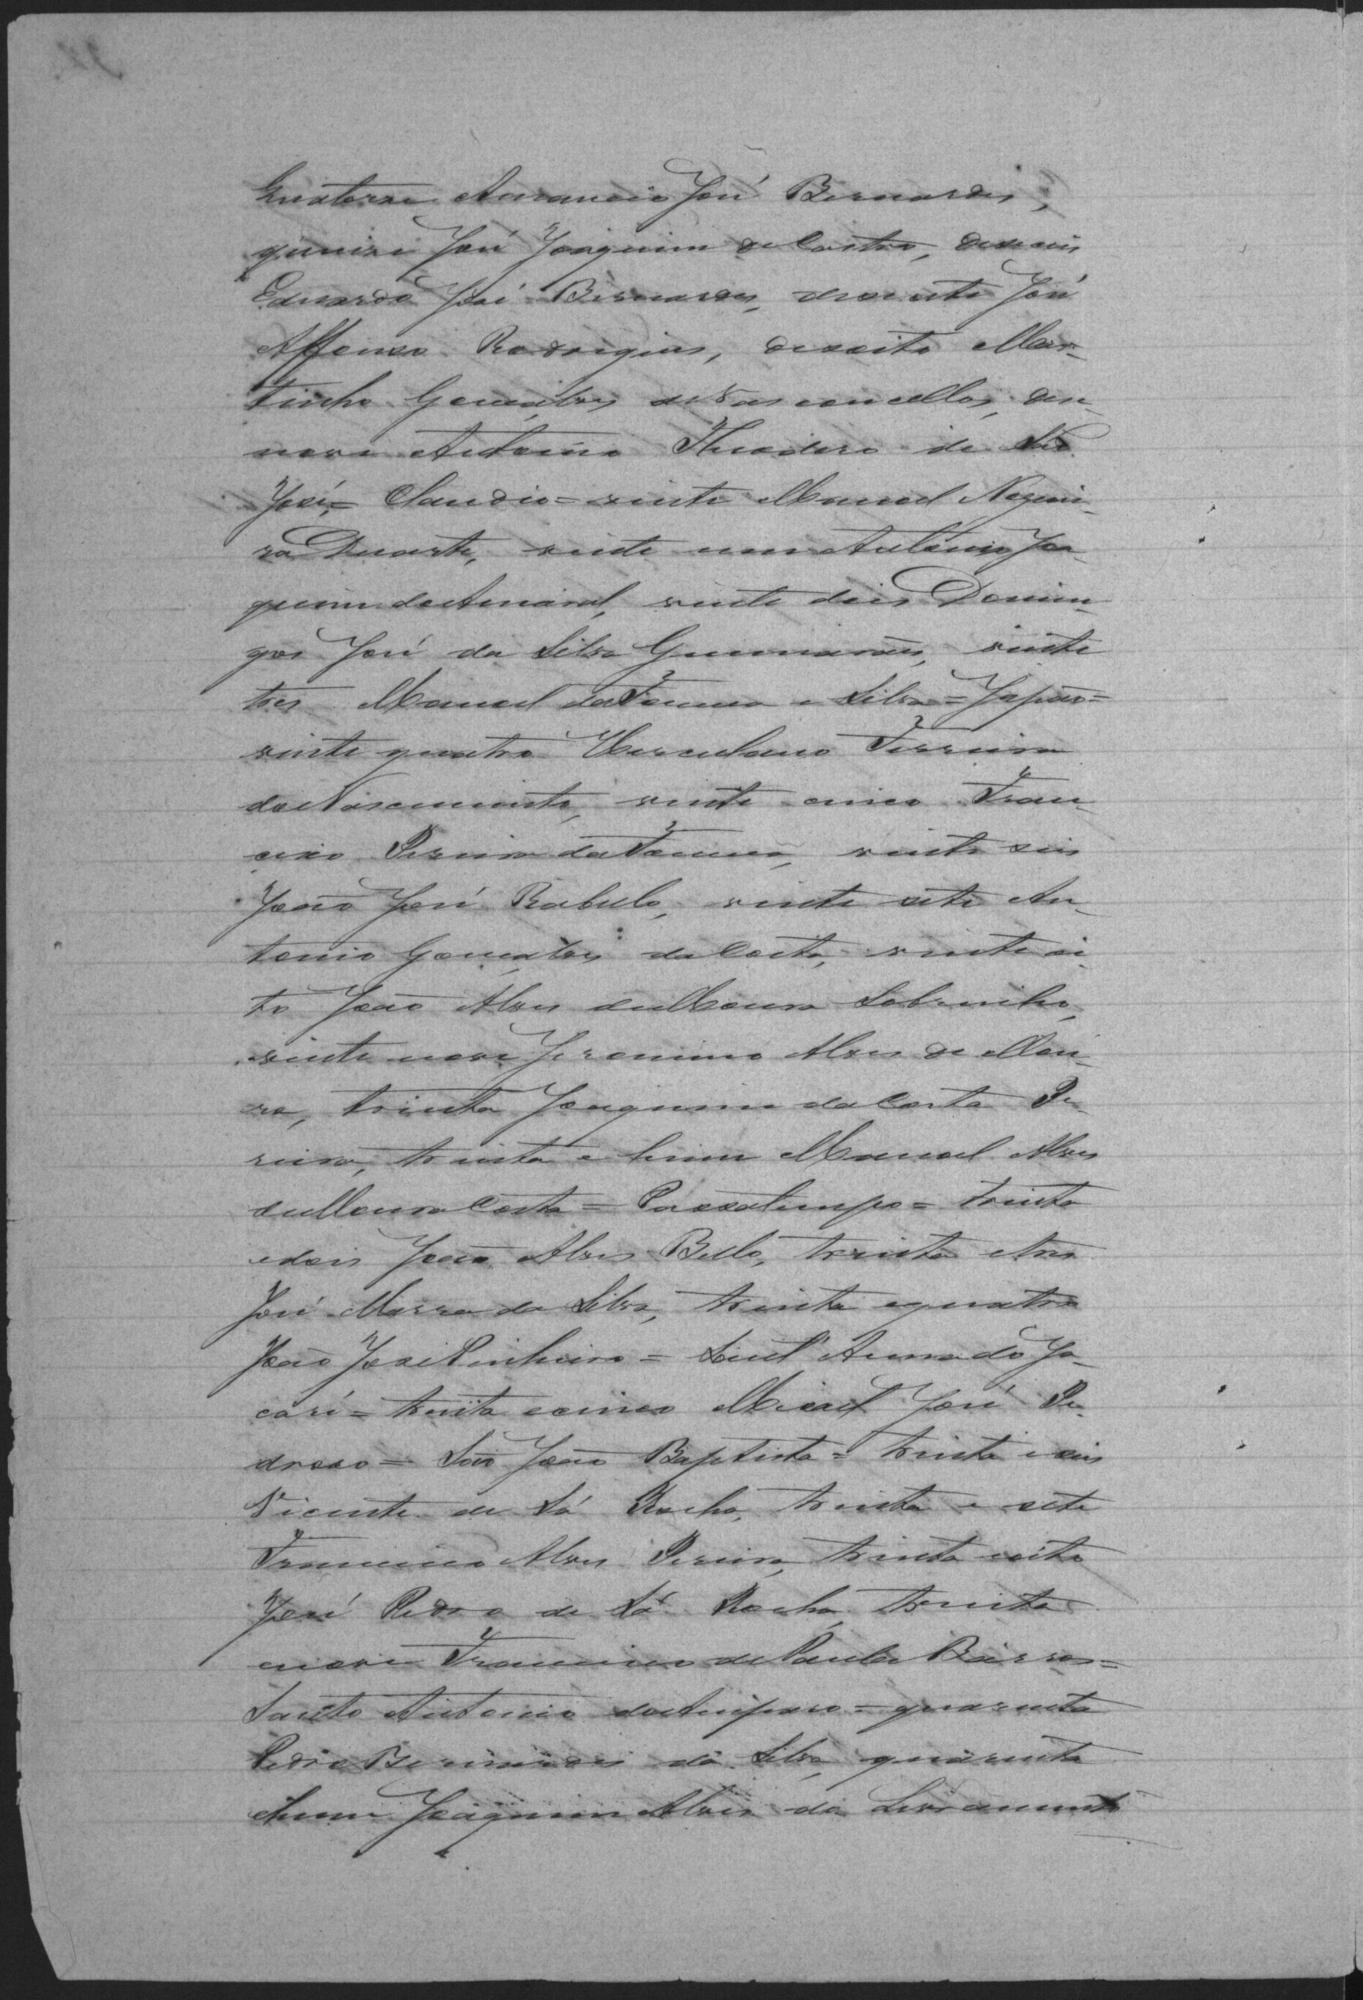 Quatorze Amancio José Bernardes,
quinze José Joaquim de Castro, deseseis
Eduardo José Bernardes, desesete José
Affonso Rodrigues, desoito Mar-
tinho Gonçalves de Vasconcellos, dese-
nove Antonio Theodoro de São
José, = Claudio = vinte Manoel Noguei-
ra Duarte, vinte um Antonio Joa-
quim do Amaral, vinte dois Domin-
gos José da Silva Guimarães, vinte
tres Manoel da Fonseca e Silva = Japão =
vinte quatro Herculano Ferreira
do Nascimento, vinte cinco Fran-
cisco Pereira da Fonseca, vinte seis
João José Rabello, vinte sete An-
tonio Gonçalves da Costa, vinte oi-
to João Alves de Moura Sobrinho,
vinte nove Jeronimo Alves de Mou-
ra, trinta Joaquim da Costa Pe-
reira, trinta e hum Manoel Alves
de Moura Costa = Passatempo = trinta
e dois João Alves Bello, trinta e tres
José Marra da Silva, trinta e quatro
João José Pinheiro = Sant'Anna do Ja-
caré = trinta e cinco Micael José Pe-
droso = São João Baptista = trinta e seis
Vicente de Sá Rocha, trinta e sete
Francisco Alves Pereira, trinta e oito
José Pedro de Sá Rocha, trinta
e nove Francisco de Paula Barros =
Santo Antonio do Amparo = quarenta
Pedro Bernardes da Silva, quarenta
e hum Joaquim Alves do Livramento